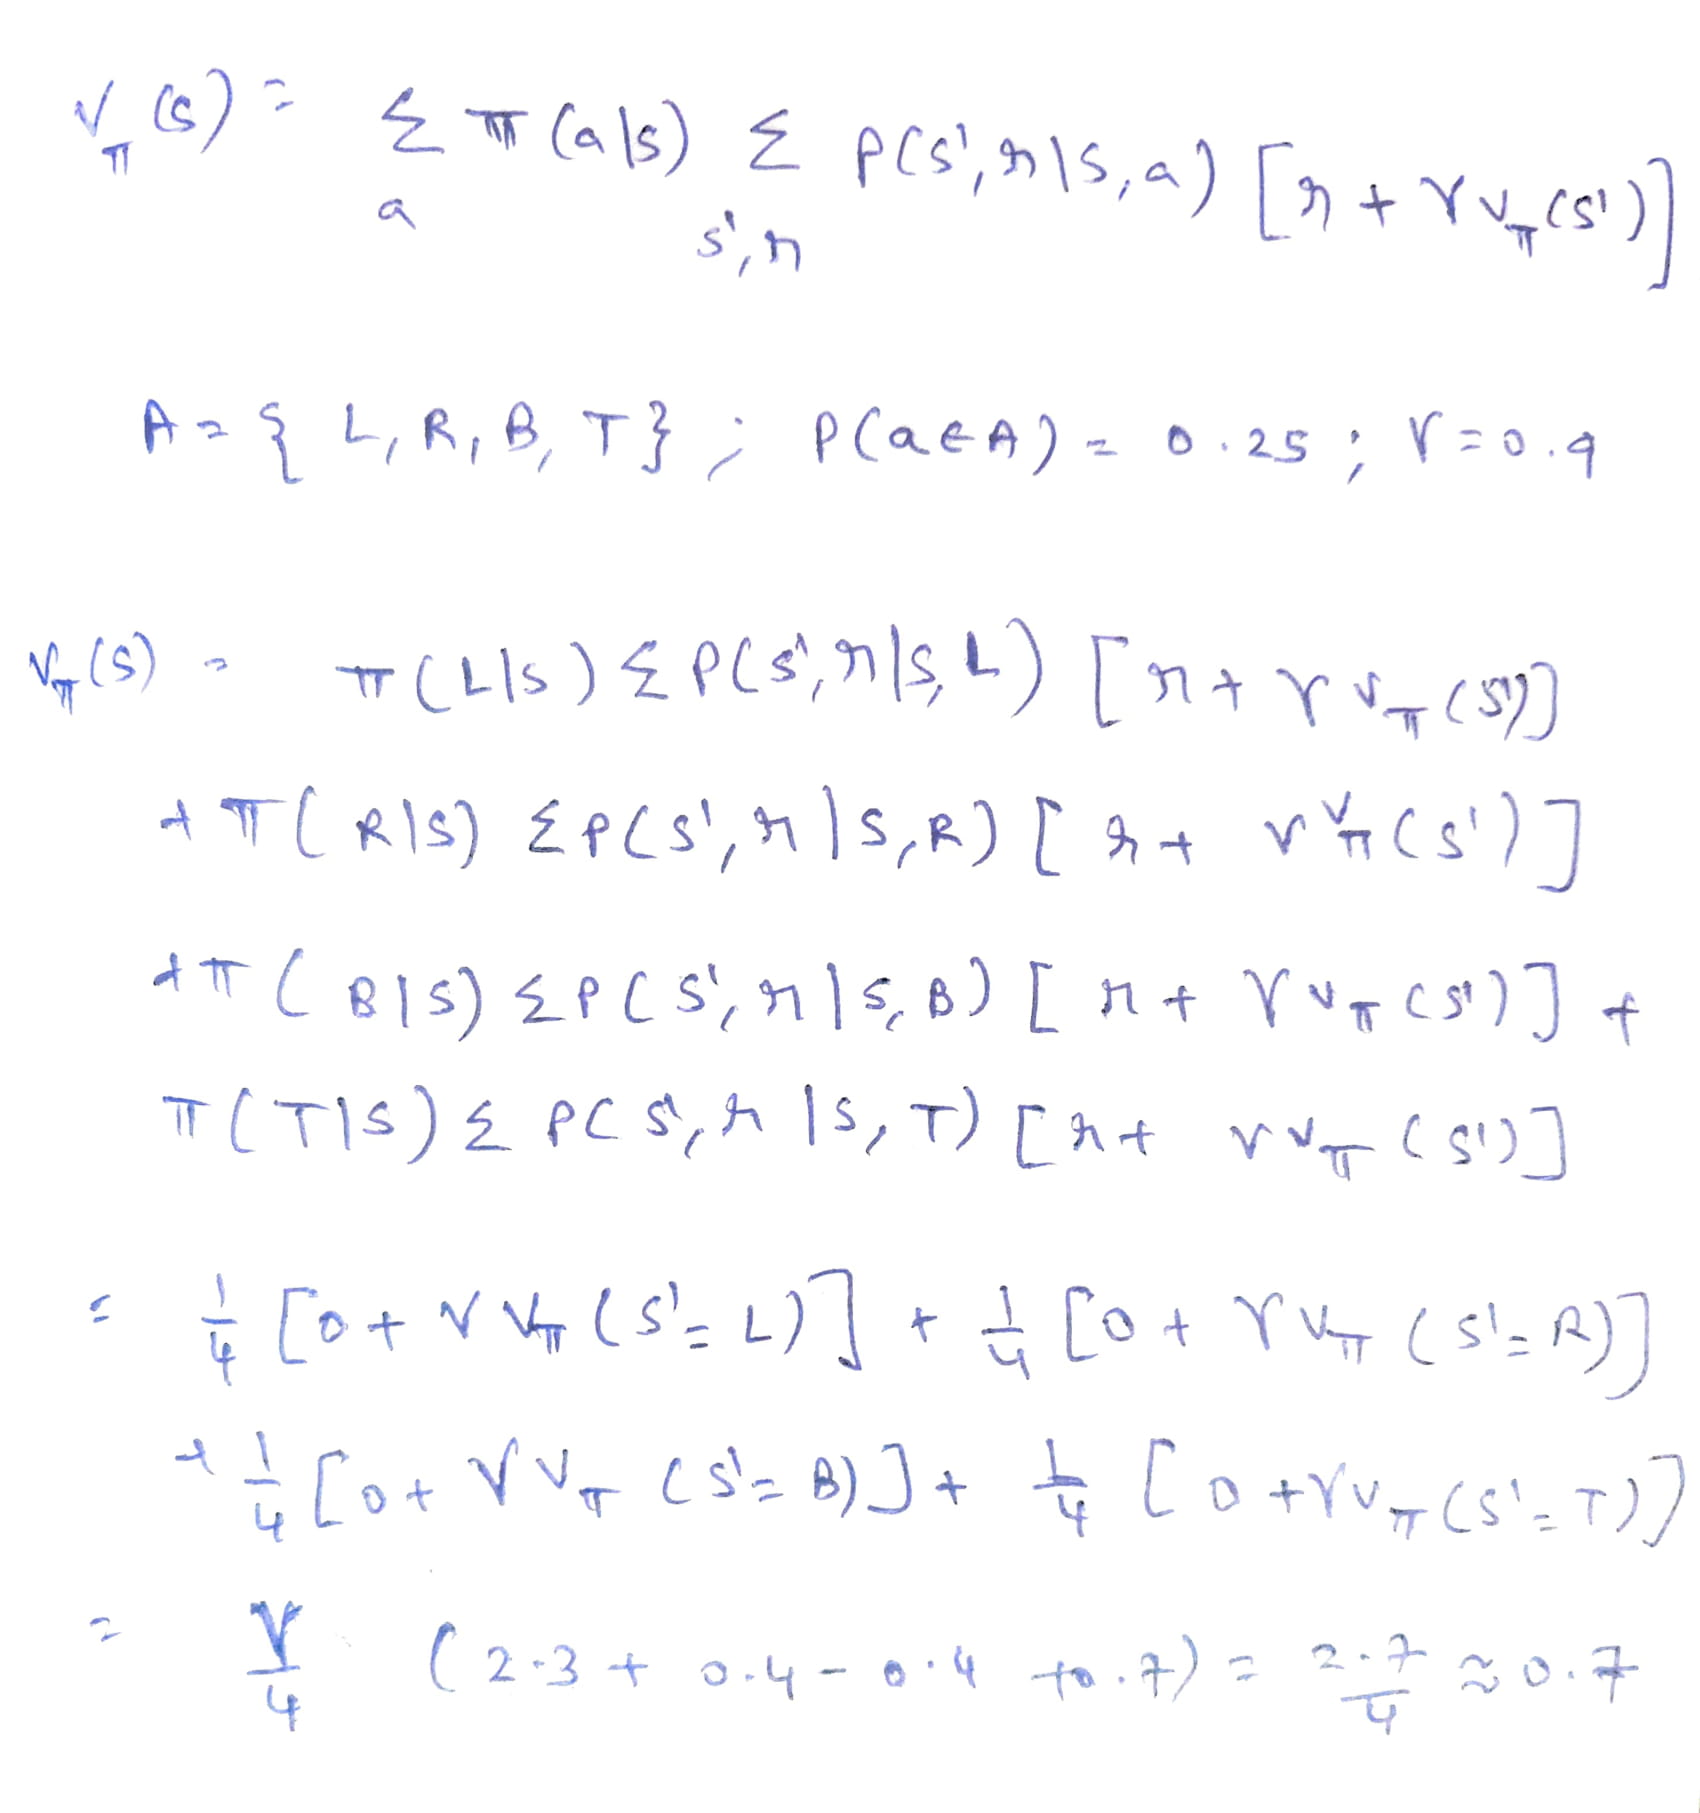 V_π(s) = Σ_a π(a|s) Σ_{s',r} P(s',r|s,a) [r + γ v_π(s')]
A = { L, R, B, T } ; P(a ∈ A) = 0.25 ; γ = 0.9
V_π(s) = π(L|s) Σ P(s',r|s,L) [r + γ v_π(s')]
+ π(R|s) Σ P(s',r|s,R) [r + γ v_π(s')]
+ π(B|s) Σ P(s',r|s,B) [r + γ v_π(s')] +
π(T|s) Σ P(s',r|s,T) [r + γ v_π(s')]
= 1/4 [0 + γ v_π(s'=L)] + 1/4 [0 + γ v_π(s'=R)]
+ 1/4 [0 + γ v_π(s'=B)] + 1/4 [0 + γ v_π(s'=T)]
= γ/4 (2.3 + 0.4 - 0.4 + 0.7) = 2.7/4 ≈ 0.7